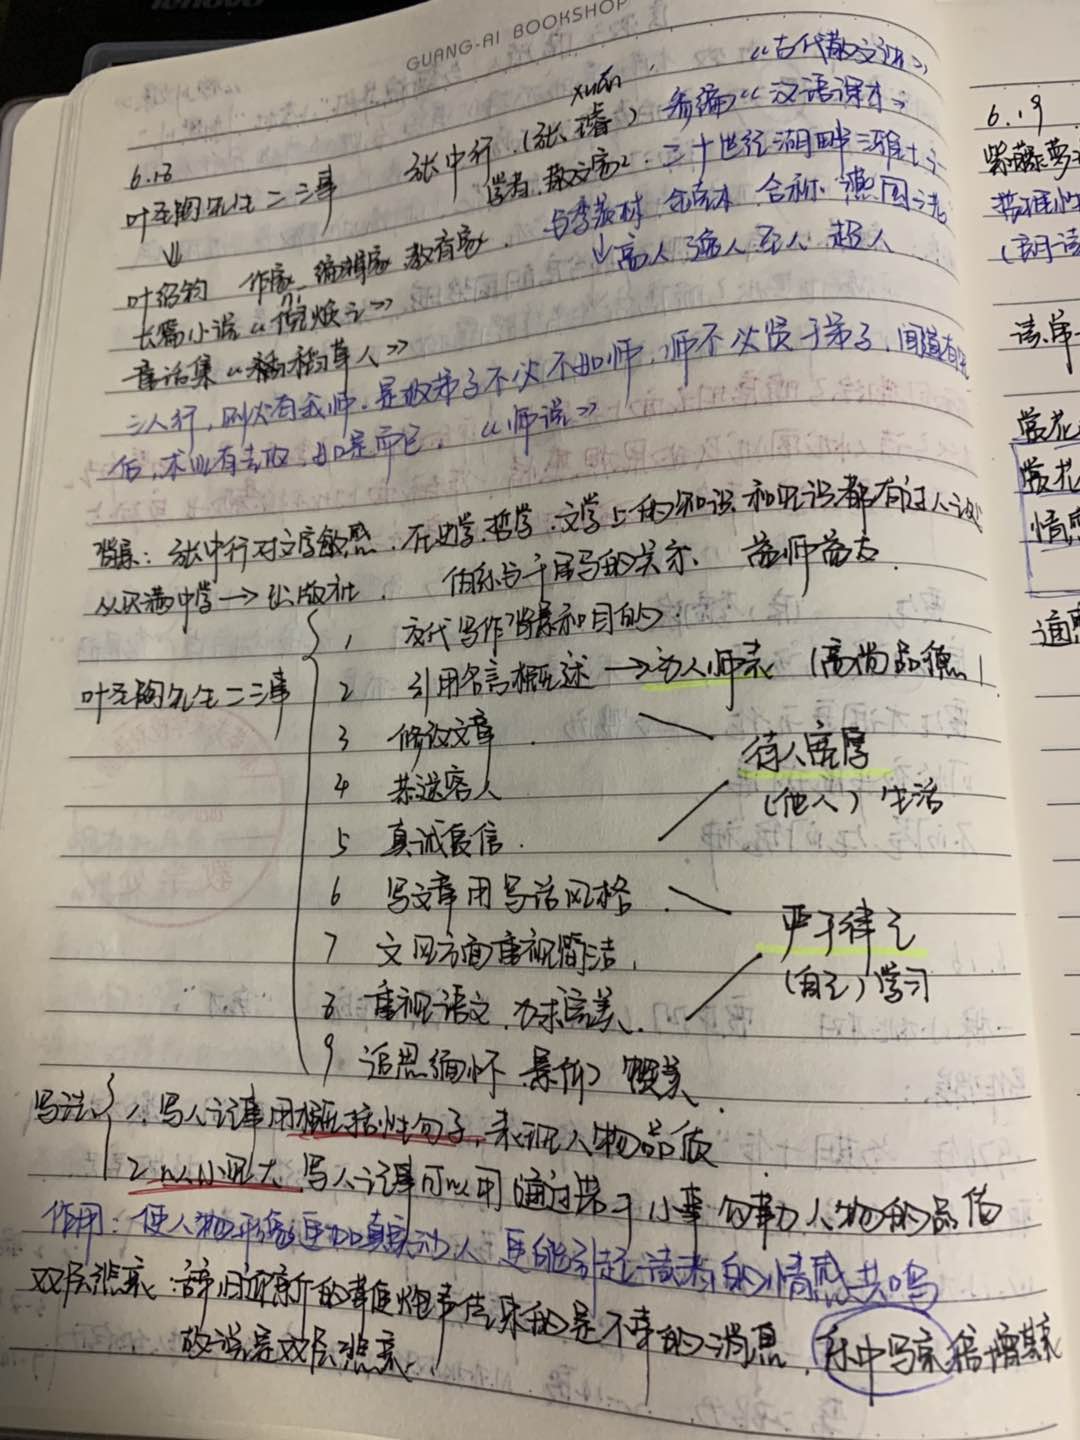 GUANG-AI BOOKSHOP
《古代散文选》
xuān
6.18 张中行（张璿）参编《汉语课本》
叶圣陶先生二三事 学者、散文家 二十世纪湖畔三雅士之一
与季羡林 金克木 合称 燕园三老
↓ 高人 逸人 至人 超人
叶绍钧 作家 编辑家 教育家
ní
长篇小说《倪焕之》
童话集《稻草人》
三人行，则必有我师。是故弟子不必不如师，师不必贤于弟子，闻道有先
后，术业有专攻，如是而已。《师说》
背景：张中行对文字敏感，在史学、哲学、文学上的知识和见识都有过人之处
从 中学→出版社 关系 益师益友
叶圣陶先生二三事
1 交代写作背景和目的
2 引用名言概述→为人师表（高尚品德）
3 修改文章
待人宽厚
4 恭送客人
（他人）生活
5 真诚复信
6 写文章用写话风格
严于律己
7 文风方面重视简洁
（自己）学习
8 重视语文，力求完美
9 追思缅怀 景仰 赞美
写法 1、写人记事用概括性句子，表现人物品质
2 以小见大 写人记事可以用通过若干小事勾勒人物的品质
作用：使人物形象更加真实动人，更能引起读者的情感共鸣
双层悲哀：辞旧迎新的鞭炮声传来的是不幸的消息，乐中写哀倍增其哀
故说是双层悲哀
6.19
紫藤萝
（朗读
读单
赏花
赏花
情感
通